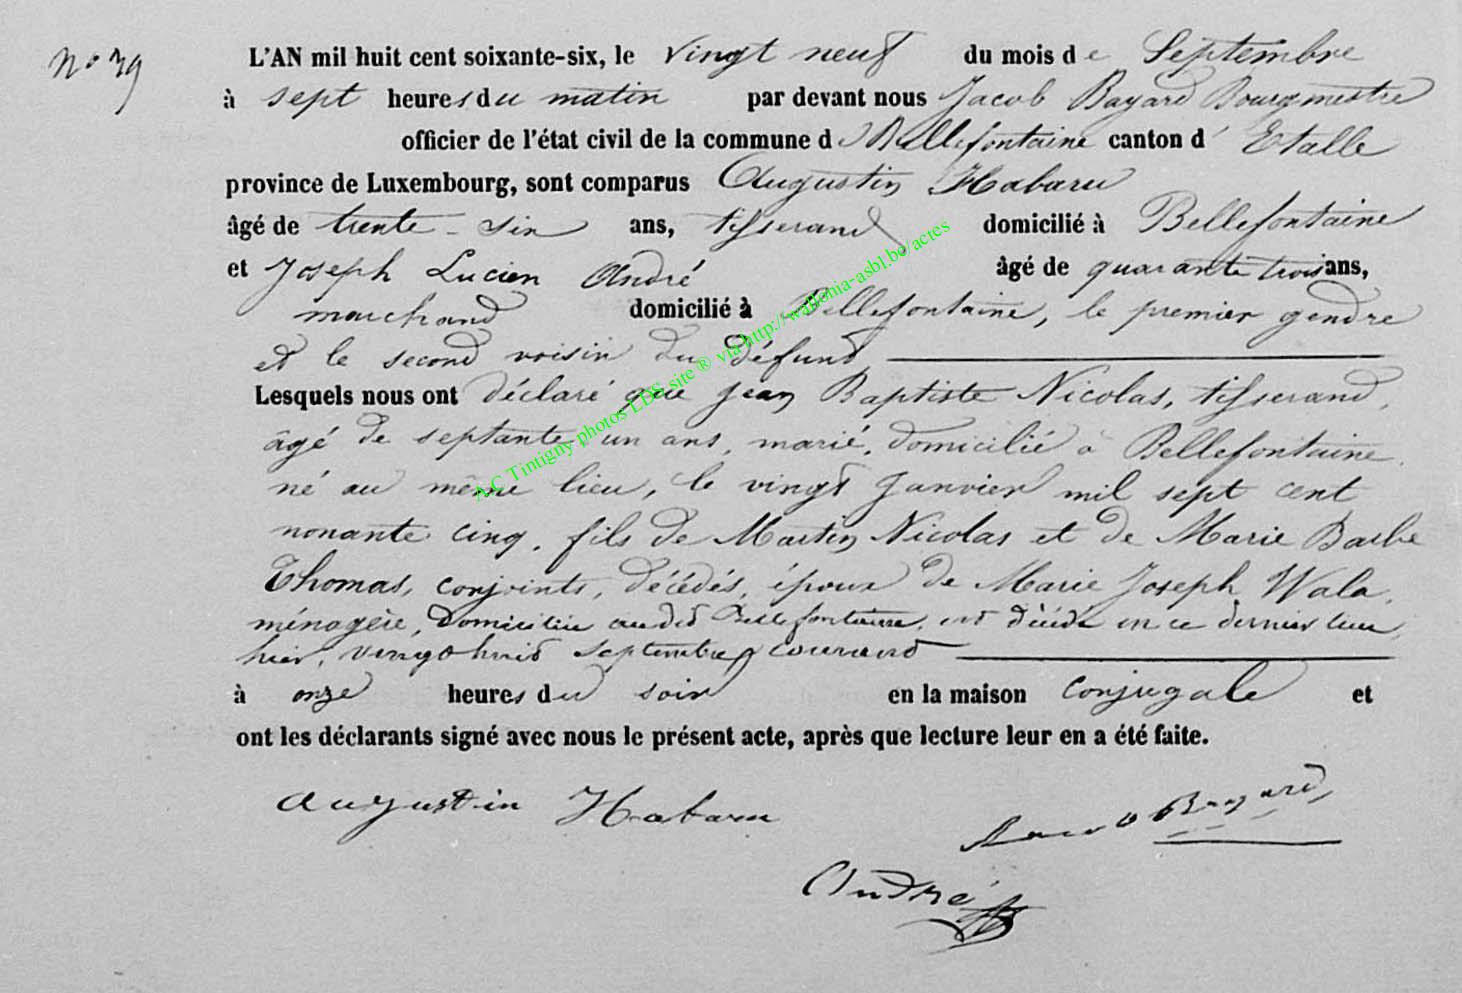 No 39
L'AN mil huit cent soixante-six, le vingt neuf du mois de Septembre
à sept heures du matin par devant nous Jacob Bayard Bourgmestre
officier de l'état civil de la commune de Bellefontaine canton d' Etalle
province de Luxembourg, sont comparus Augustin Habaru
âgé de trente-six ans, tisserand domicilié à Bellefontaine
et Joseph Lucien André âgé de quarante trois ans,
marchand domicilié à Bellefontaine, le premier gendre
et le second voisin du défunt
Lesquels nous ont déclaré que Jean Baptiste Nicolas, tisserand,
âgé de septante un ans, marié, domicilié à Bellefontaine,
né au même lieu, le vingt Janvier mil sept cent
nonante cinq, fils de Martin Nicolas et de Marie Barbe
Thomas, conjoints, décédés, époux de Marie Joseph Wala,
ménagère, domiciliée audit Bellefontaine, est décédé en ce dernier lieu,
hier, vingt huit septembre courant
à onze heures du soir en la maison conjugale et
ont les déclarants signé avec nous le présent acte, après que lecture leur en a été faite.
Augustin Habaru
Jacob Bayard
André
A.C Tintigny photos LDS site ® via http://wallonia-asbl.be/actes